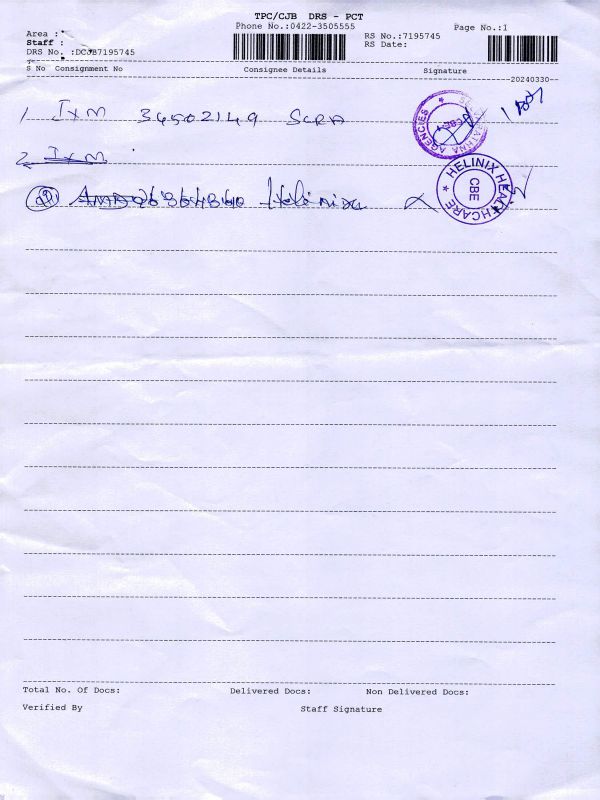 TPC/CJB DRS - PCT
Phone No.:0422-3505555 Page No.:1
Area :
Staff :
DRS No. :DCJB7195745
RS No.:7195745
RS Date:
S No Consignment No Consignee Details Signature
20240330
1 IXM 34502149 SCRA
AGENCIES
CBE
2 IXM
HELINIX HEALTHCARE
CBE
2)
Total No. Of Docs: Delivered Docs: Non Delivered Docs:
Verified By Staff Signature